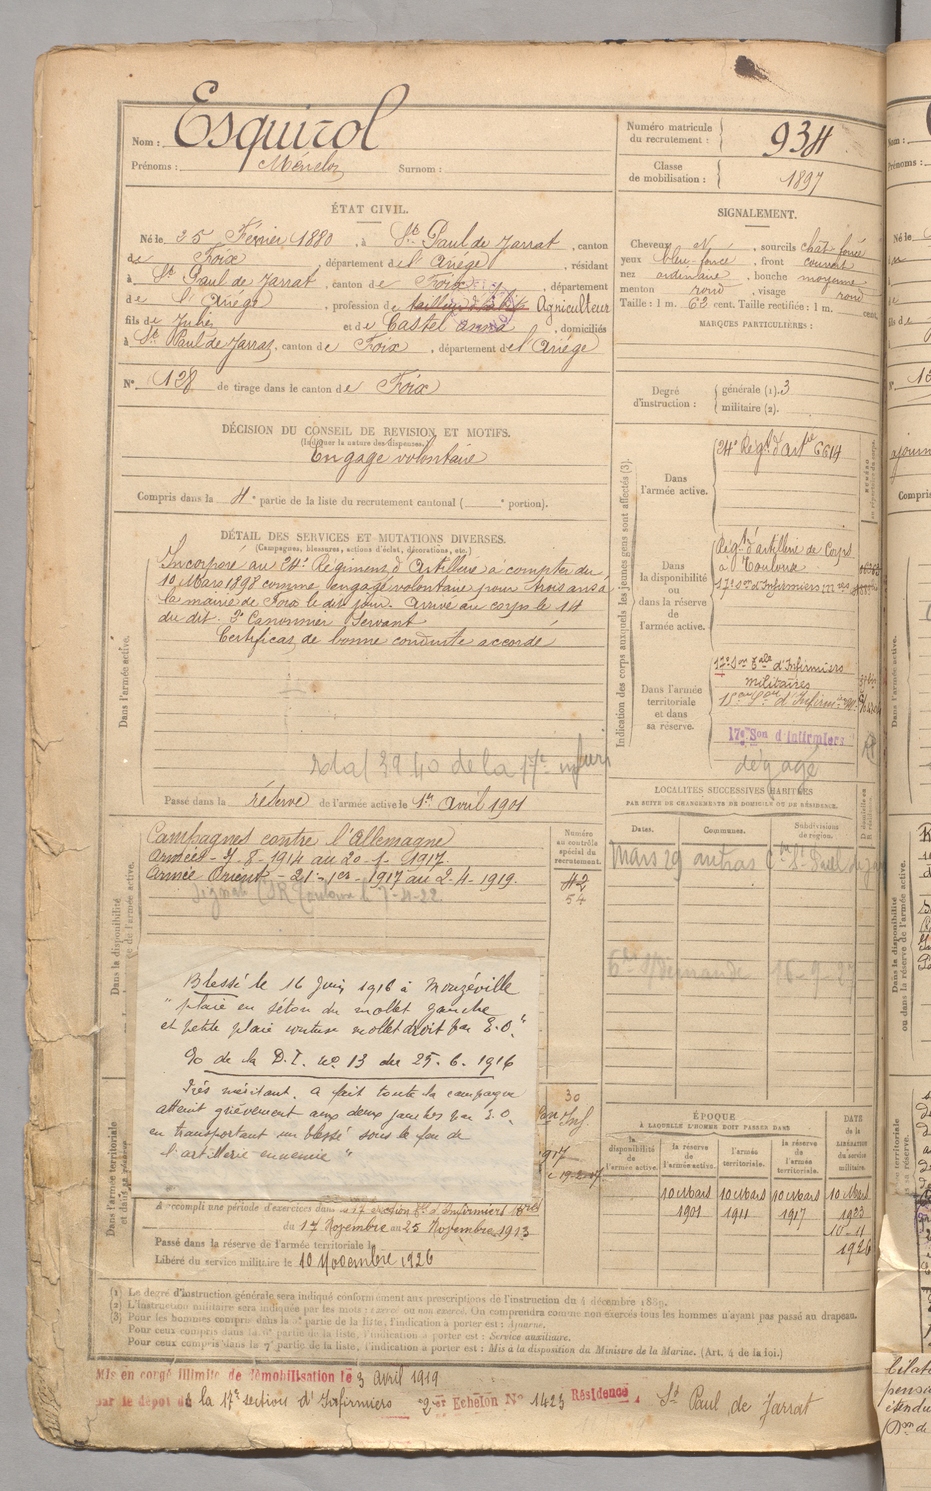 Nom : Esquirol
Prénoms : Surnom :
Numéro matricule du recrutement : 934
Classe de mobilisation : 1897
ÉTAT CIVIL.
Né le 25 Février 1880, à St Paul de Jarrat, canton
de Foix, département de l'Ariège, résidant
à St Paul de Jarrat, canton de Foix, département
de l'Ariège, profession de Agriculteur
fils de Jules et de Castel anna, domiciliés
à St Paul de Jarrat, canton de Foix, département de l'Ariège
N° 128 de tirage dans le canton de Foix
SIGNALEMENT.
Cheveux N, sourcils chat. foncé
yeux bleu foncé, front couvert
nez ordinaire, bouche moyenne
menton rond, visage rond
Taille : 1 m. 62 cent. Taille rectifiée : 1 m. cent.
MARQUES PARTICULIÈRES :
Degré d'instruction : générale (1). 3
militaire (2).
DÉCISION DU CONSEIL DE REVISION ET MOTIFS.
(Indiquer la nature des dispenses.)
Engagé volontaire
Compris dans la 4e partie de la liste du recrutement cantonal ( e portion).
DÉTAIL DES SERVICES ET MUTATIONS DIVERSES.
(Campagnes, blessures, actions d'éclat, décorations, etc.)
Dans l'armée active.
Incorporé au 24e Régiment d'Artillerie à compter du
10 Mars 1898 comme engagé volontaire pour trois ans à
la mairie de Foix le dit jour. Arrivé au corps le 14
du dit. 2e Canonnier Servant
Certificat de bonne conduite accordé
Passé dans la réserve de l'armée active le 1er Avril 1901
Indication des corps auxquels les jeunes gens sont affectés (3).
Dans l'armée active.
24e Régt d'Artie 6614
Dans la disponibilité ou dans la réserve de l'armée active.
Régt d'artillerie de Corps
à Toulouse
17e Son d'Infirmiers
Dans l'armée territoriale et dans sa réserve.
d'Infirmiers
militaires
17e Son d'Infirmiers
dégagé
LOCALITÉS SUCCESSIVES HABITÉES
PAR SUITE DE CHANGEMENTS DE DOMICILE OU DE RÉSIDENCE.
Dates. Communes. Subdivisions de région.
Mars 29
16-2-27
Campagnes contre l'Allemagne
Armées - 7-8-1914 au 20-1-1917.
Armée Orient - 21-1er-1917 au 2-4-1919.
Numéro au contrôle spécial du recrutement.
42
54
Blessé le 16 Juin 1916 à Monzéville
"plaie en séton du mollet gauche
et petite plaie mollet droit par E.O."
% de la D.I. no 13 du 25-6-1916
Très méritant. A fait toute la campagne
atteint grièvement aux deux jambes par E.O.
en transportant un blessé sous le feu de
l'artillerie ennemie "
30
Dans l'armée territoriale et dans sa réserve.
A accompli une période d'exercices dans la 17e Section d'Infirmiers
du 17 Novembre au 25 Novembre 1913
Passé dans la réserve de l'armée territoriale le
Libéré du service militaire le 10 Novembre 1926
ÉPOQUE
À LAQUELLE L'HOMME DOIT PASSER DANS
la disponibilité de l'armée active. la réserve de l'armée active. l'armée territoriale. la réserve de l'armée territoriale. DATE de la LIBÉRATION du service militaire.
10 Mars 10 Mars 10 Mars 10 Mars
1901 1911 1917 1923
10-11
1926
(1) Le degré d'instruction générale sera indiqué conformément aux prescriptions de l'instruction du 4 décembre 1889.
(2) L'instruction militaire sera indiquée par les mots : exercé ou non exercé. On comprendra comme non exercés tous les hommes n'ayant pas passé au drapeau.
(3) Pour les hommes compris dans la 5e partie de la liste, l'indication à porter est : Ajourné.
Pour ceux compris dans la 6e partie de la liste, l'indication à porter est : Service auxiliaire.
Pour ceux compris dans la 7e partie de la liste, l'indication à porter est : Mis à la disposition du Ministre de la Marine. (Art. 4 de la loi.)
Mis en congé illimité de démobilisation le 3 Avril 1919
par le dépôt de la 17e section d'Infirmiers 2e Echelon N° 1423 Résidence St Paul de Jarrat